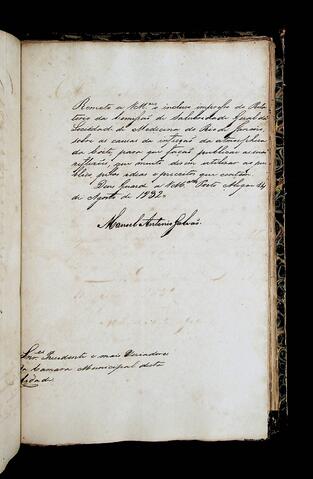 Remeto a VMces o incluso impresso do Rela-
torio da Comissão de Salubridade Geral da
Sociedade de Medicina do Rio de Janeiro
sobre as causas da infecção da atmosphera
da Corte, para que fação publicar as suas
reflexões, que muito devem utilisar ao pu-
blico pelas ideas e preceitos que contém.
Deos Guarde a VMces Porto Alegre 24
de Agosto de 1832.
Manoel Antonio Galvão.
Snres Presidente e mais Vereadores
da Camara Municipal desta
Cidade